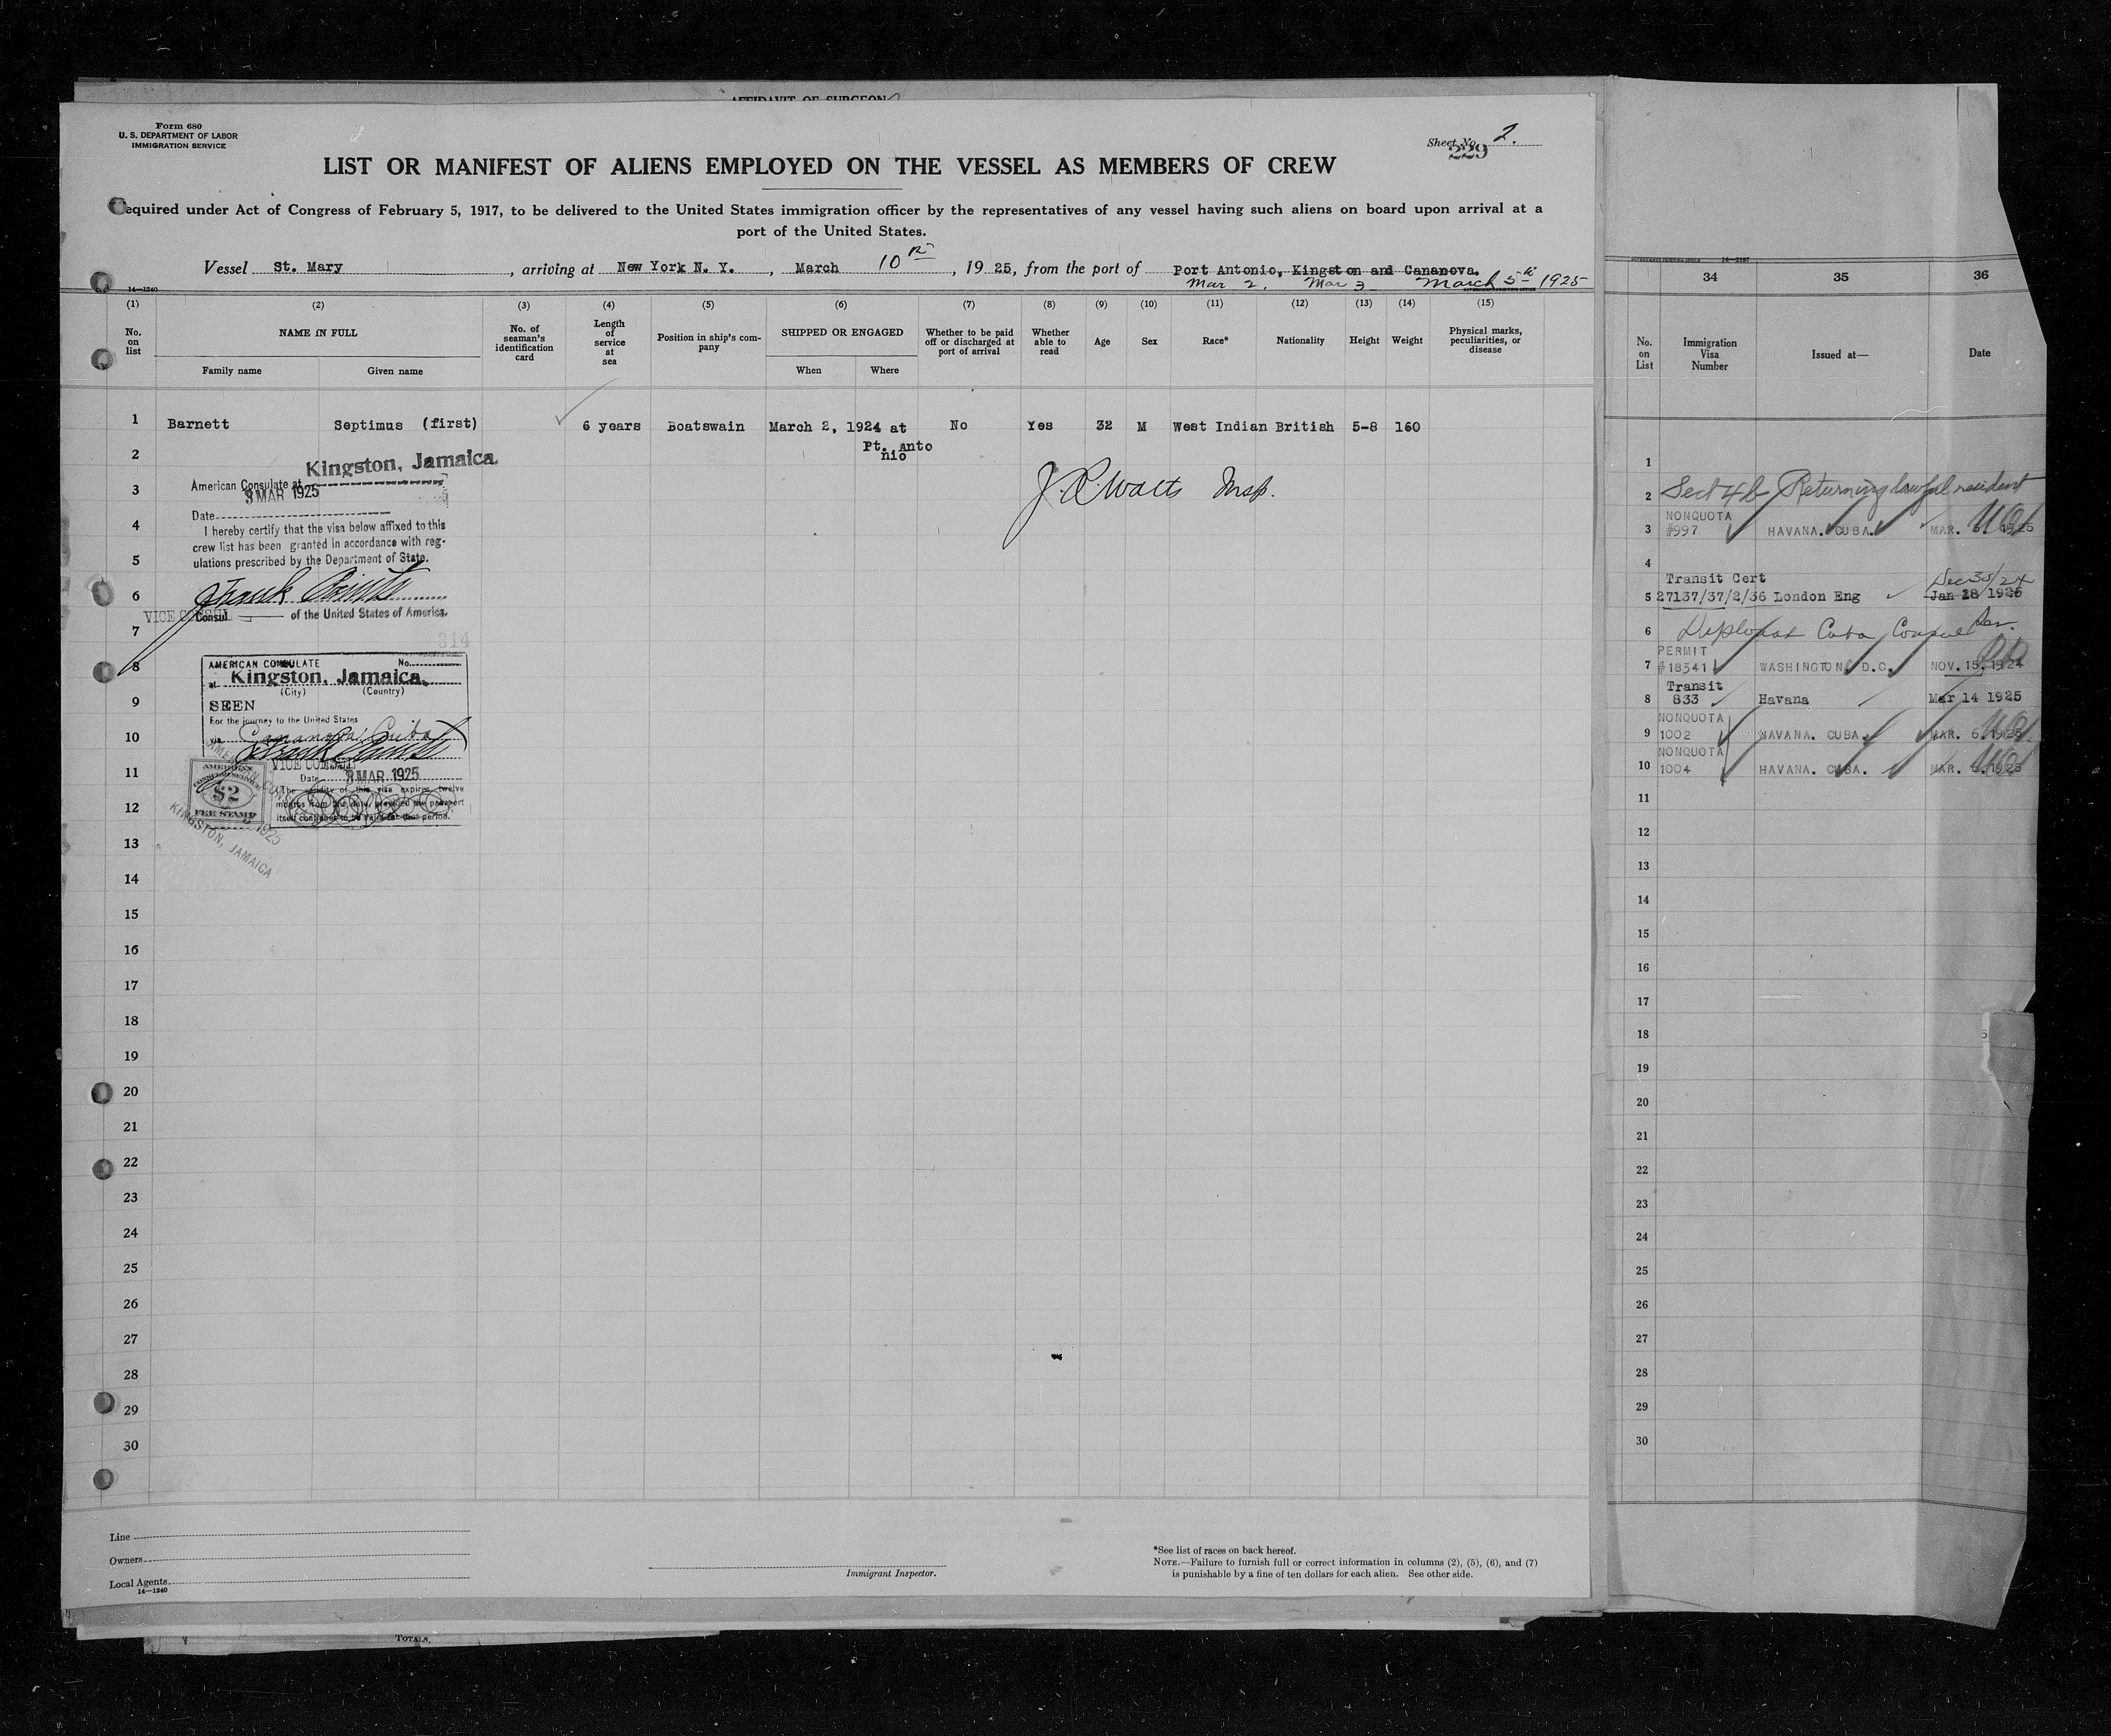 AFFIDAVIT OF SURGEON
Form 680
U. S. DEPARTMENT OF LABOR
IMMIGRATION SERVICE
Sheet No. 2.
229
LIST OR MANIFEST OF ALIENS EMPLOYED ON THE VESSEL AS MEMBERS OF CREW
equired under Act of Congress of February 5, 1917, to be delivered to the United States immigration officer by the representatives of any vessel having such aliens on board upon arrival at a
port of the United States.
Vessel St. Mary, arriving at New York N. Y., March 10th, 1925, from the port of Port Antonio, Kingston and Cananova.
Mar 2, Mar 3 March 5th 1925
14—1240
(1) (2) (3) (4) (5) (6) (7) (8) (9) (10) (11) (12) (13) (14) (15)
No. on list
NAME IN FULL
Family name Given name
No. of seaman's identification card
Length of service at sea
Position in ship's company
SHIPPED OR ENGAGED
When Where
Whether to be paid off or discharged at port of arrival
Whether able to read
Age
Sex
Race*
Nationality
Height
Weight
Physical marks, peculiarities, or disease
1 Barnett Septimus (first) 6 years Boatswain March 2, 1924 at No Yes 32 M West Indian British 5-8 160
Pt. Anto
nio
2
3
4
5
6
7
8
9
10
11
12
13
14
15
16
17
18
19
20
21
22
23
24
25
26
27
28
29
30
Kingston, Jamaica
American Consulate at
3 MAR 1925
Date
I hereby certify that the visa below affixed to this
crew list has been granted in accordance with reg-
ulations prescribed by the Department of State.
VICE CONSUL
Consul of the United States of America.
314
AMERICAN CONSULATE No.
at Kingston, Jamaica.
(City) (Country)
SEEN
For the journey to the United States
via Cananova, Cuba
VICE CONSUL
Date 3 MAR 1925
The validity of this visa expires twelve
months from this date, provided the passport
itself continues to be valid for that period.
AMERICAN
CONSULAR SERVICE
$2
FEE STAMP
1925
KINGSTON, JAMAICA
J. R. Watts Insp.
Line
Owners
Local Agents
14—1240
Immigrant Inspector.
*See list of races on back hereof.
NOTE.—Failure to furnish full or correct information in columns (2), (5), (6), and (7)
is punishable by a fine of ten dollars for each alien. See other side.
TOTALS,
34 35 36
No. on List
Immigration Visa Number
Issued at—
Date
1
2 Sect 4b Returning lawful resident
NONQUOTA
3 #997 HAVANA. CUBA. MAR. 5. 1925
4
Transit Cert Dec 30/24
5 27137/37/2/36 London Eng Jan 28 1925
6 Diplomat Cuba Consul
PERMIT
7 #18541 WASHINGTON D.C. NOV. 15. 1924
Transit
8 833 Havana Mar 14 1925
NONQUOTA
9 1002 HAVANA. CUBA. MAR. 6. 1925
NONQUOTA
10 1004 HAVANA. CUBA. MAR. 1925
11
12
13
14
15
16
17
18
19
20
21
22
23
24
25
26
27
28
29
30